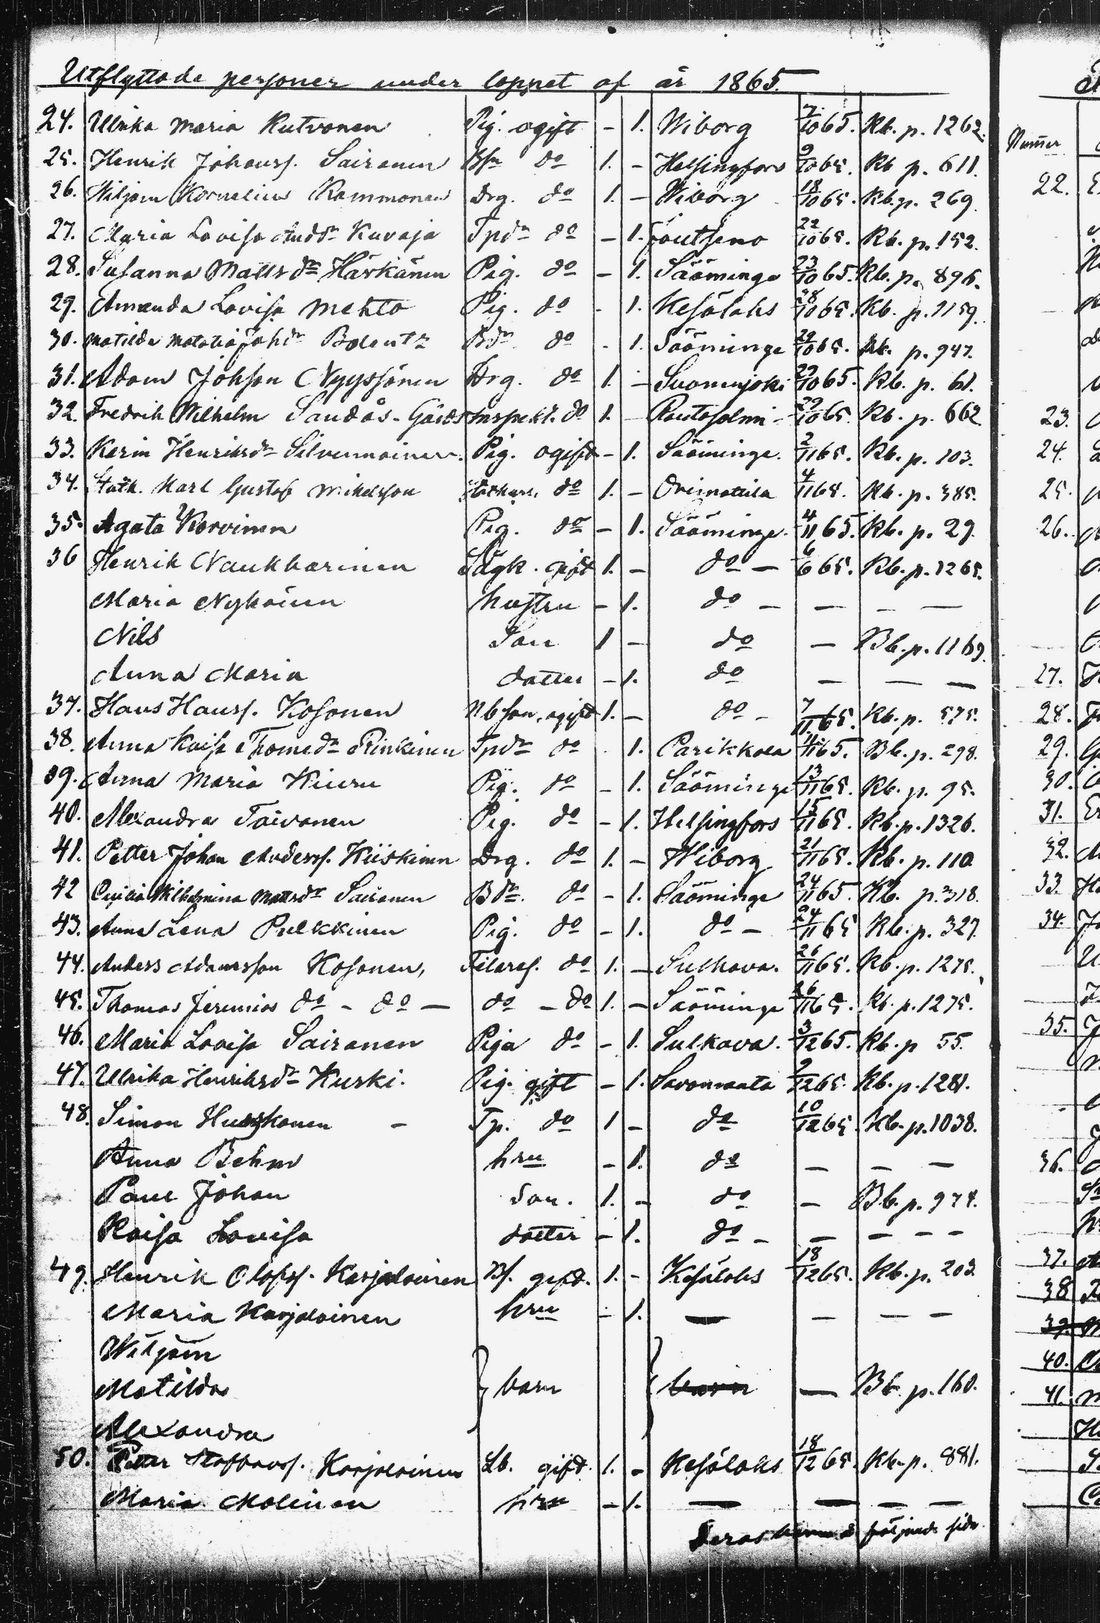 Utflyttade personer under loppet af år 1865.
24. Ulrika Maria Rutvonen Pig. ogift – 1. Wiborg 7/10 65. Kb. p. 1262.
25. Henrik Johanss. Sairanen do 1. – Helsingfors 9/10 65. Kb p. 611.
26. Wiljam Kornelius Rammonen Drg. do 1. – Wiborg 18/10 65. Kb. p. 269.
27. Maria Lovisa Andrdr Kuvaja Tpdr do – 1. Joutseno 22/10 65. Kb. p. 152.
28. Susanna Mattsdr Härkänen Pig. do – 1. Sääminge 23/10 65 Kb. p. 896.
29. Amanda Lovisa Mehto Pig. do – 1. Kesälaks 28/10 65. Kb. p. 1159.
30. Matilda Johdr Bdr do 1. Sääminge 29/10 65. Kb. p. 947.
31. Adam Johsson Nyyssönen Drg. do 1. – Suonenjoki 29/10 65. Kb. p. 61.
32. Fredrik Wilhelm Inspekt. do 1. – Rautalmi – 29/10 65. Kb. p. 662
33. Karin Henriksdr Silvennoinen. Pig. ogift – 1. Sääminge. 2/11 65. Kb. p. 103.
34. Karl Gustaf Mikelsson do 1. – Orimattila 4/11 65. Kb. p. 385.
35. Agata Korvinen Pig. do – 1. Sääminge. 4/11 65. Kb. p. 29.
36 Henrik Naukkarinen gift 1. – do – 6/6 65. Kb. p. 1265.
Maria Nykänen hustru – 1. do – – – –
Nils Son 1 – do – Bb. p. 1169.
Anna Maria dotter – 1. do – – –
37. Hans Hanss. Kosonen Nbson. ogift 1. – do – 7/11 65. Kb. p. 575.
38. Anna Kaisa Thomsdr Pinkinen Tpdr do 1. Parikkala 11/11 65. Bb. p. 298.
39. Anna Maria Kiuru Pig. do – 1. Sääminge 13/11 65. Kb. p. 95.
40. Alexandra Taivanen Pig. do – 1. Helsingfors 15/11 65. Kb. p. 1326.
41. Petter Johan Anderss. Kiiskinen Drg. do 1. – Wiborg 21/11 65. Kb. p. 110.
42 Cecilia Wilhelmina Mattsdr Sairanen Bdr. do – 1. Sääminge 24/11 65. Kb. p. 318.
43. Anna Lena Pulkkinen Pig. do – 1. do – 24/11 65 Kb. p. 327.
44. Anders Adamsson Kosonen, do 1. – Sulkava. 26/11 65. Kb. p. 1275.
45. Thomas Jeremias do – do – do – do 1. – Sääminge 26/11 65. Kb. p. 1275.
46. Maria Lovisa Sairanen Piga do – 1. Sulkava. 3/12 65. Kb. p 55.
47. Ulrika Henriksdr Kurki. Pig. gift – 1. Savonranta 9/12 65. Kb. p. 1281.
48. Simon Huuskonen – Tp. do 1 – do 10/12 65. Kb. p. 1038.
Anna Behm hru – 1. do – – –
Paul Johan Son. 1. – do – – Bb. p. 974.
Kaisa Lovisa dotter – 1. do – – – – –
49. Henrik Olofss. Karjalainen Bs. gift. 1. – Kesälaks 18/12 65. Kb. p. 203.
Maria Karjalainen hru – 1. – – – –
Wiljam
Matilda barn barn – Bb. p. 160.
Alexandra
50. Petter Staffanss. Karjalainen Lb. gift. 1. – Kesälaks 18/12 65. Kb. p. 881.
Maria Molinen hru – 1. – – – –
Deras följande sida
Numer
22.
23.
24.
25.
26.
27.
28.
29.
30.
31.
32.
33.
34.
35.
36.
37.
38
39.
40.
41.